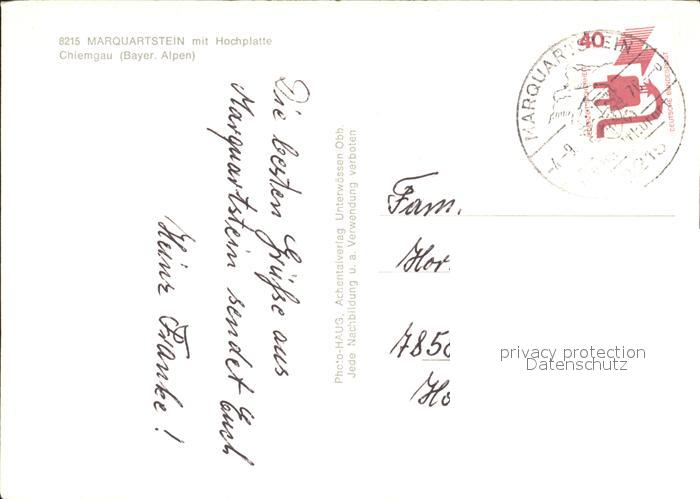 8215 MARQUARTSTEIN mit Hochplatte
Chiemgau (Bayer. Alpen)
Die besten Grüße aus
Marquartstein sendet Euch
Heinz Franke!
Photo-HAUG, Achentalverlag Unterwössen Obb.
Jede Nachbildung u. a. Verwendung verboten
40
DEUTSCHE BUNDESPOST
MARQUARTSTEIN
8215
Fam.
Hor.
7850
Ho
privacy protection
Datenschutz